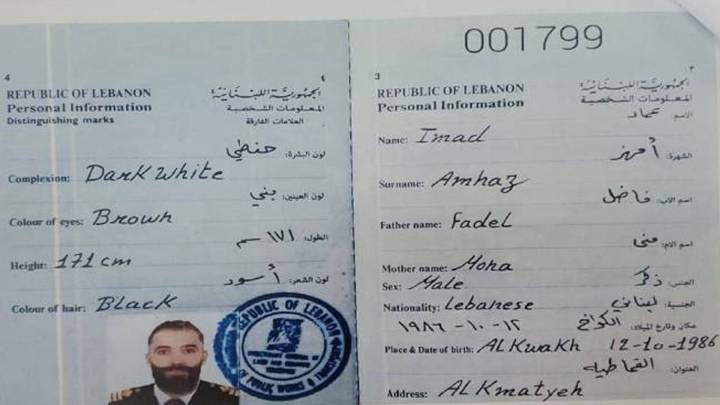 4
٤
REPUBLIC OF LEBANON
الجمهوريّة اللبنانيّة
Personal Information
المعلومات الشخصية
Distinguishing marks
العلامات الفارقة
حنطي
لون البشرة:
Complexion: Dark white
بني
لون العينين:
Colour of eyes: Brown
١٧١ سم
الطول:
Height: 171 cm
أسود
لون الشعر:
Colour of hair: Black
REPUBLIC OF LEBANON
001799
3
٣
REPUBLIC OF LEBANON
الجمهوريّة اللبنانيّة
Personal Information
المعلومات الشخصية
عماد
الاسم:
Name: Imad
أمهز
الشهرة:
Surname: Amhaz
فاضل
اسم الاب:
Father name: Fadel
منى
اسم الام:
Mother name: Mona
ذكر
الجنس:
Sex: Male
لبناني
الجنسية:
Nationality: Lebanese
الكواخ
مكان وتاريخ الميلاد:
١٩٨٦ - ١٠ - ١٢
Place & Date of birth: AL Kwakh 12-10-1986
القماطية
العنوان:
Address: AL Kmatyeh